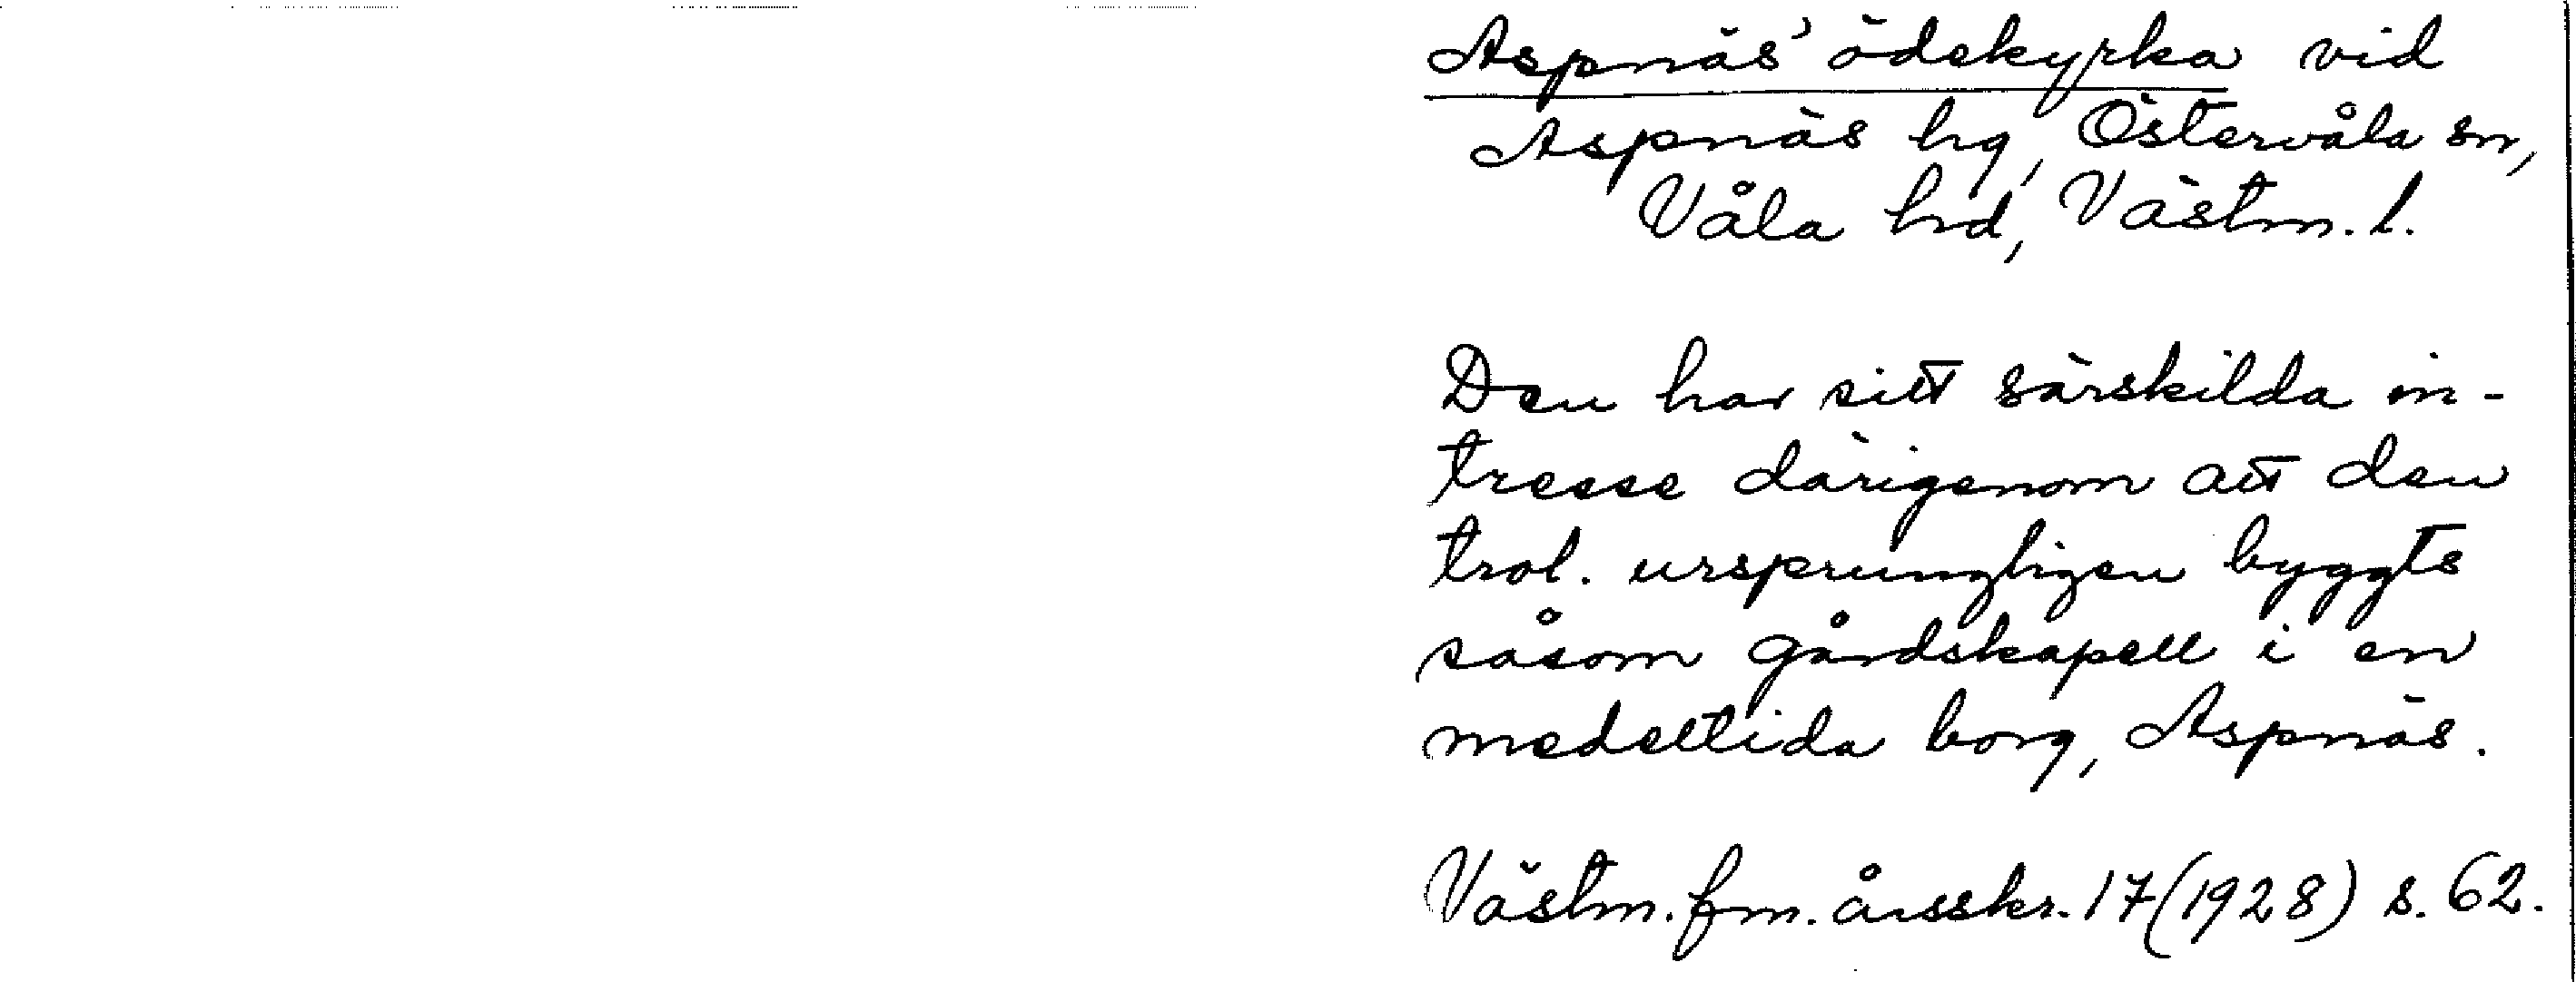 Aspnäs' ödekyrka vid
Aspnäs hg, Östervåla sn,
Våla hd, Västm. l.
Den har sitt särskilda in-
tresse därigenom att den
trol. ursprungligen byggts
såsom gårdskapell i en
medeltida borg, Aspnäs.
Västm. fm. årsskr. 17 (1928) s. 62.